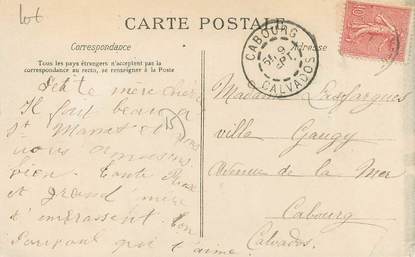 lot
CARTE POSTALE
Correspondance
Adresse
Tous les pays étrangers n'acceptent pas la
correspondance au recto, se renseigner à la Poste
CABOURG
9
SEPT
CALVADOS
10
Petite mère chérie
Il fait beau à
St Mamet et nous
nous amusons
bien. Tante
et grand'mère
t'embrassent. Ton
qui t'aime.
15
Madame
villa Gaugy
Avenue de la Mer
Cabourg
Calvados.